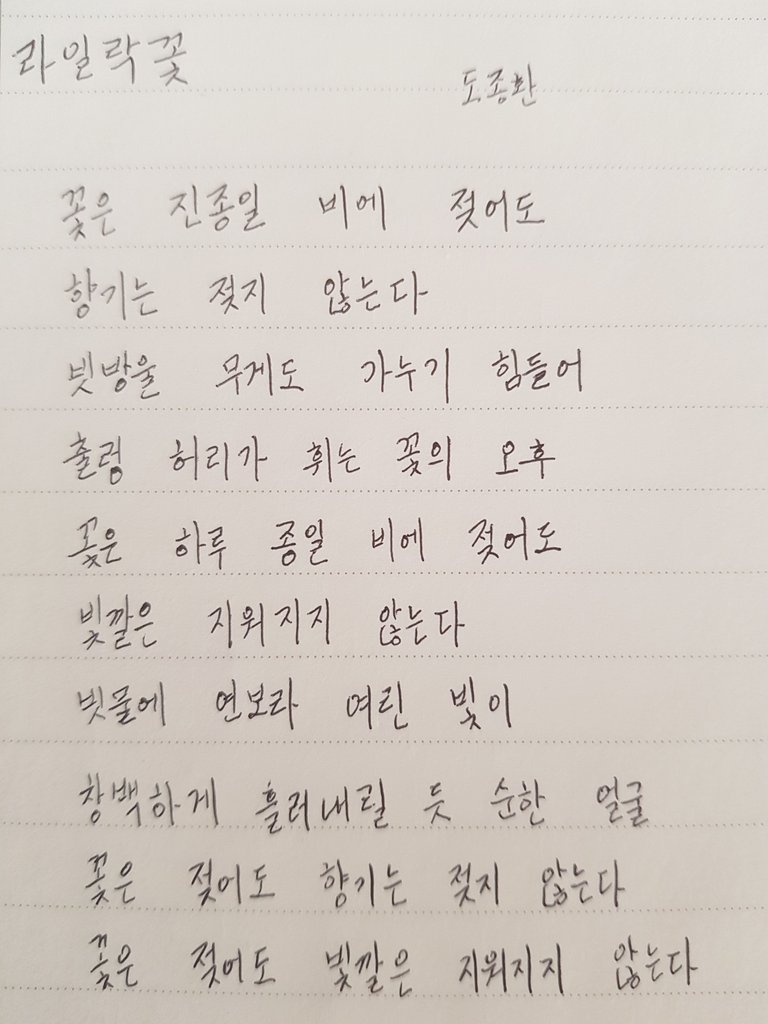 라일락꽃
도종환
꽃은 진종일 비에 젖어도
향기는 젖지 않는다
빗방울 무게도 가누기 힘들어
출렁 허리가 휘는 꽃의 오후
꽃은 하루 종일 비에 젖어도
빛깔은 지워지지 않는다
빗물에 연보라 여린 빛이
창백하게 흘러내릴 듯 순한 얼굴
꽃은 젖어도 향기는 젖지 않는다
꽃은 젖어도 빛깔은 지워지지 않는다